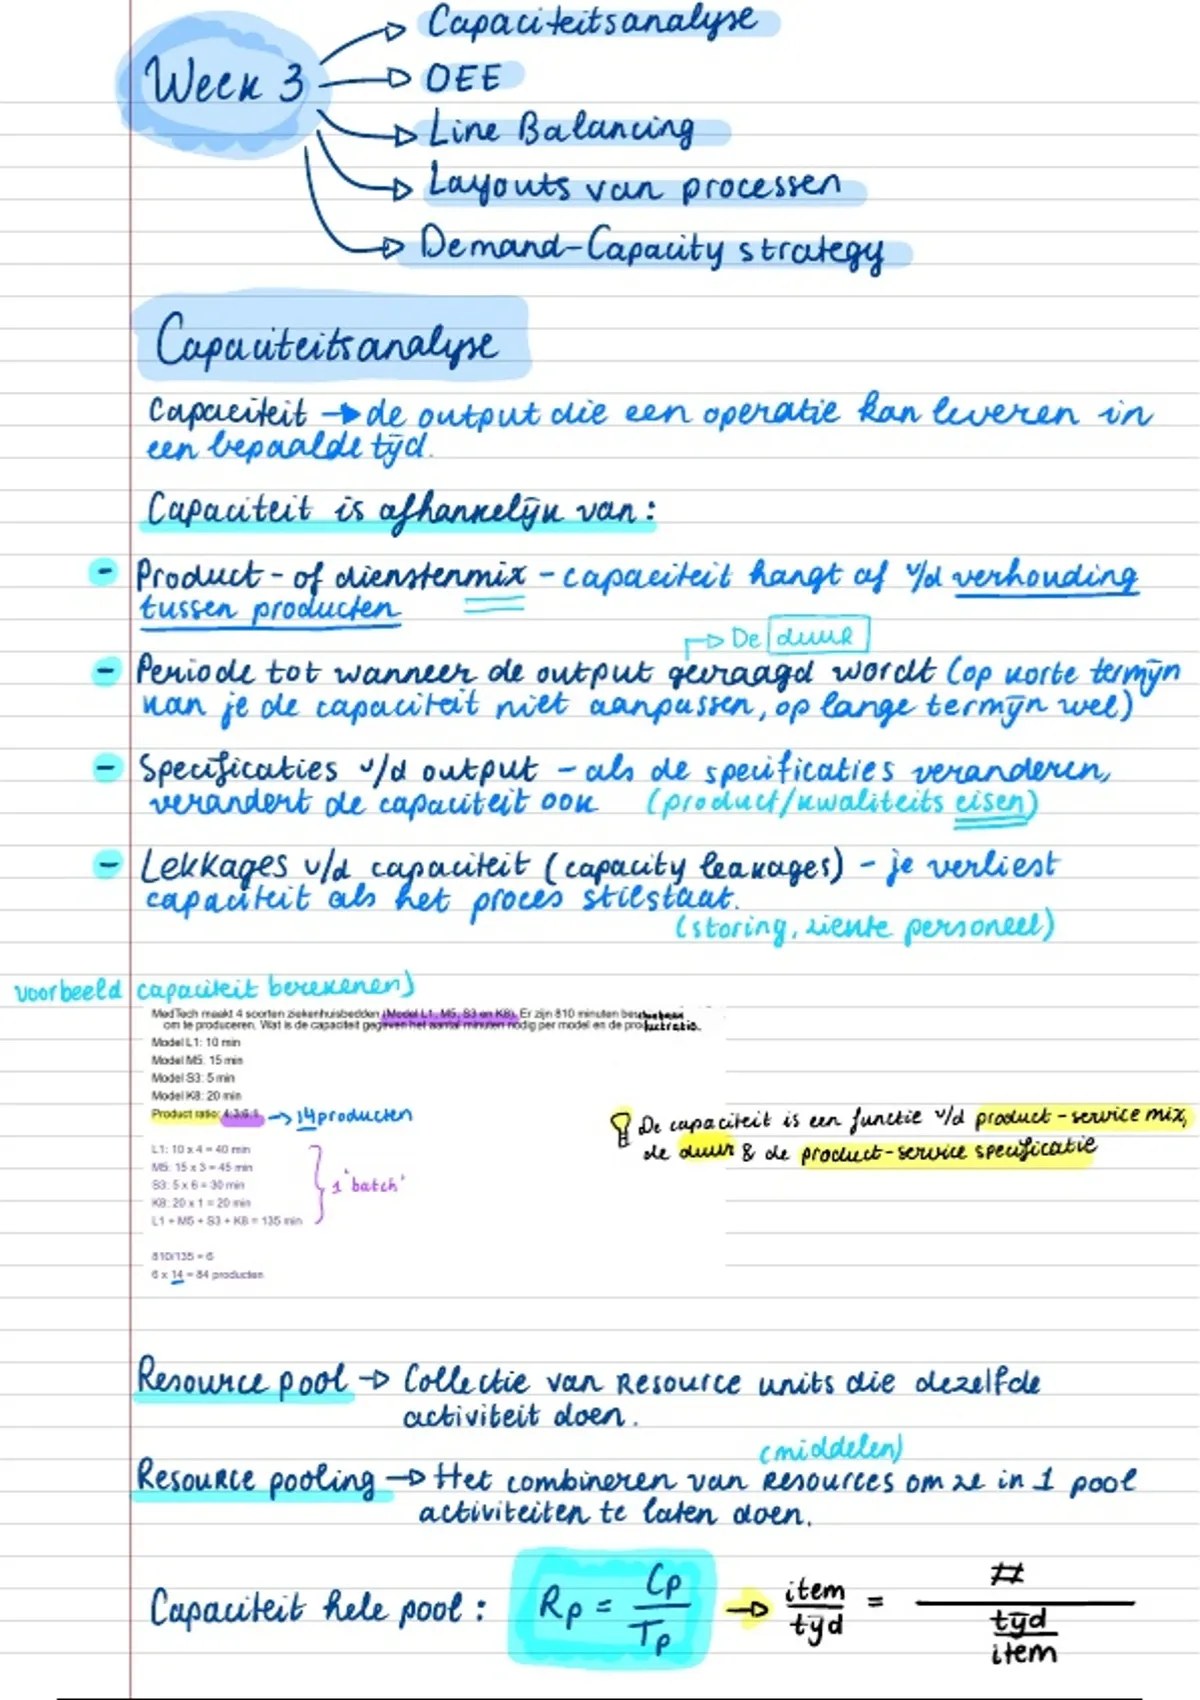 Week 3
Capaciteitsanalyse
OEE
Line Balancing
Layouts van processen
Demand-Capacity strategy
Capaciteitsanalyse
Capaciteit → de output die een operatie kan leveren in
een bepaalde tijd.
Capaciteit is afhankelijk van:
- Product- of dienstenmix - capaciteit hangt af v/d verhouding
tussen producten
→ De duur
- Periode tot wanneer de output gevraagd wordt (op korte termijn
kan je de capaciteit niet aanpassen, op lange termijn wel)
- Specificaties v/d output - als de specificaties veranderen,
verandert de capaciteit ook (product/kwaliteits eisen)
- Lekkages v/d capaciteit (capacity leakages) - je verliest
capaciteit als het proces stilstaat.
(storing, ziekte personeel)
voorbeeld capaciteit berekenen)
MedTech maakt 4 soorten ziekenhuisbedden (Model L1, M5, S3 en K8). Er zijn 810 minuten beschikbaar
om te produceren. Wat is de capaciteit gegeven het aantal minuten nodig per model en de productratio.
Model L1: 10 min
Model M5: 15 min
Model S3: 5 min
Model K8: 20 min
Product ratio: 4:3:6:1 → 14 producten
De capaciteit is een functie v/d product-service mix,
de duur & de product-service specificatie
L1: 10 x 4 = 40 min
M5: 15 x 3 = 45 min
S3: 5 x 6 = 30 min
K8: 20 x 1 = 20 min
L1 + M5 + S3 + K8 = 135 min
1 'batch'
810/135 = 6
6 x 14 = 84 producten
Resource pool → Collectie van Resource units die dezelfde
activiteit doen.
(middelen)
Resource pooling → Het combineren van Resources om ze in 1 pool
activiteiten te laten doen.
Capaciteit hele pool: Rp = Cp / Tp → item / tijd = # / (tijd / item)